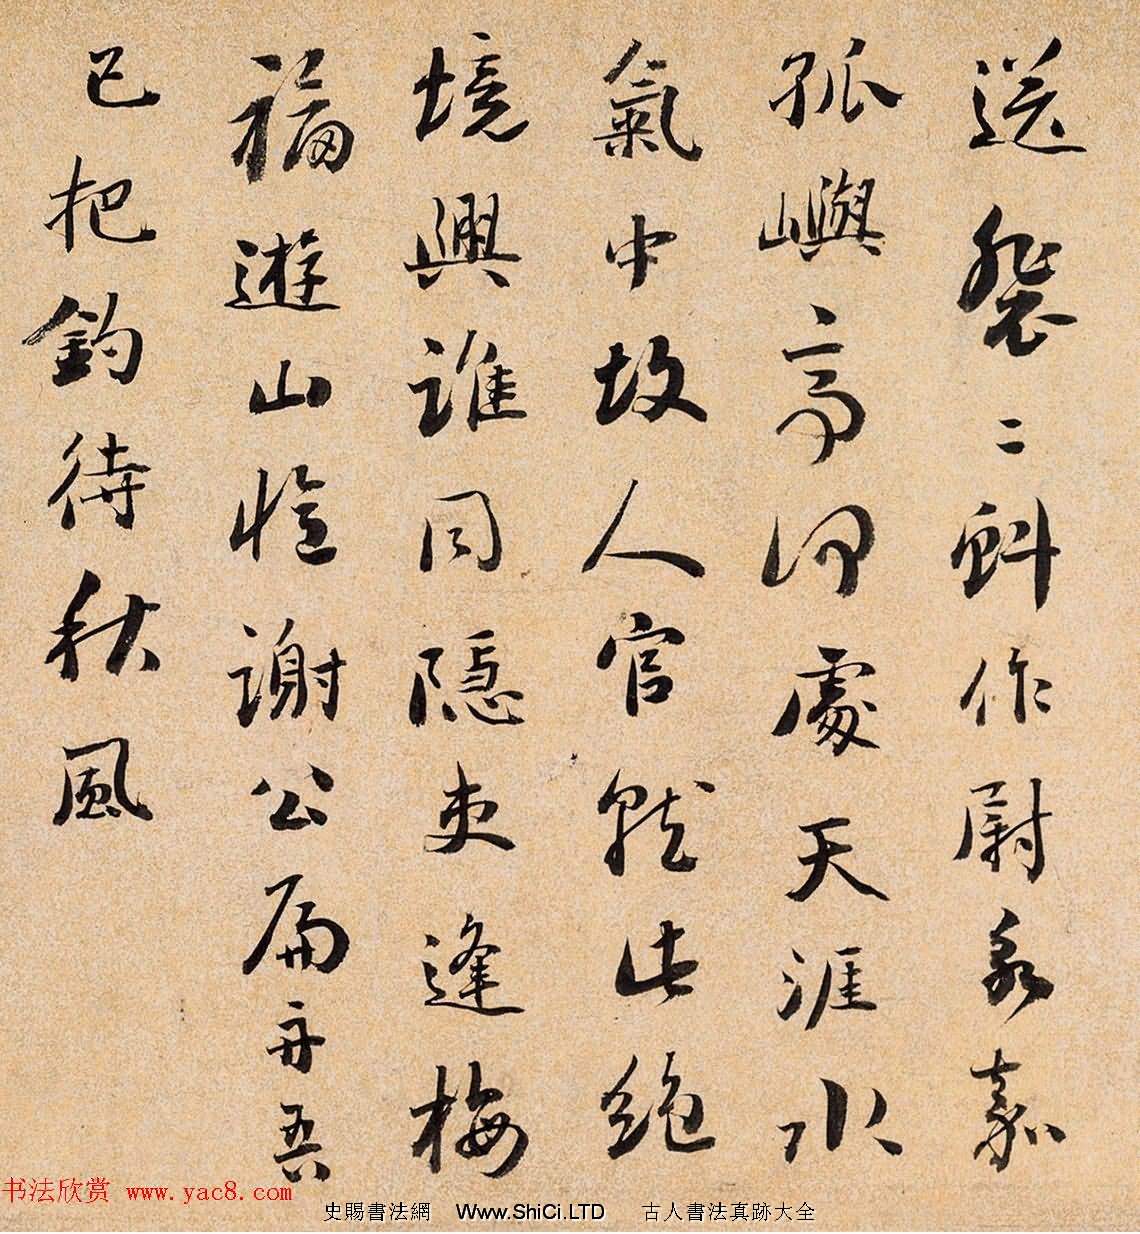 送裴二虯作尉永嘉
孤嶼亭何處天涯水
氣中故人官就此絕
境興誰同隱吏逢梅
福遊山憶謝公扁舟吾
已把釣待秋風
书法欣赏 www.yac8.com
史賜書法網 Www.ShiCi.LTD 古人書法真跡大全